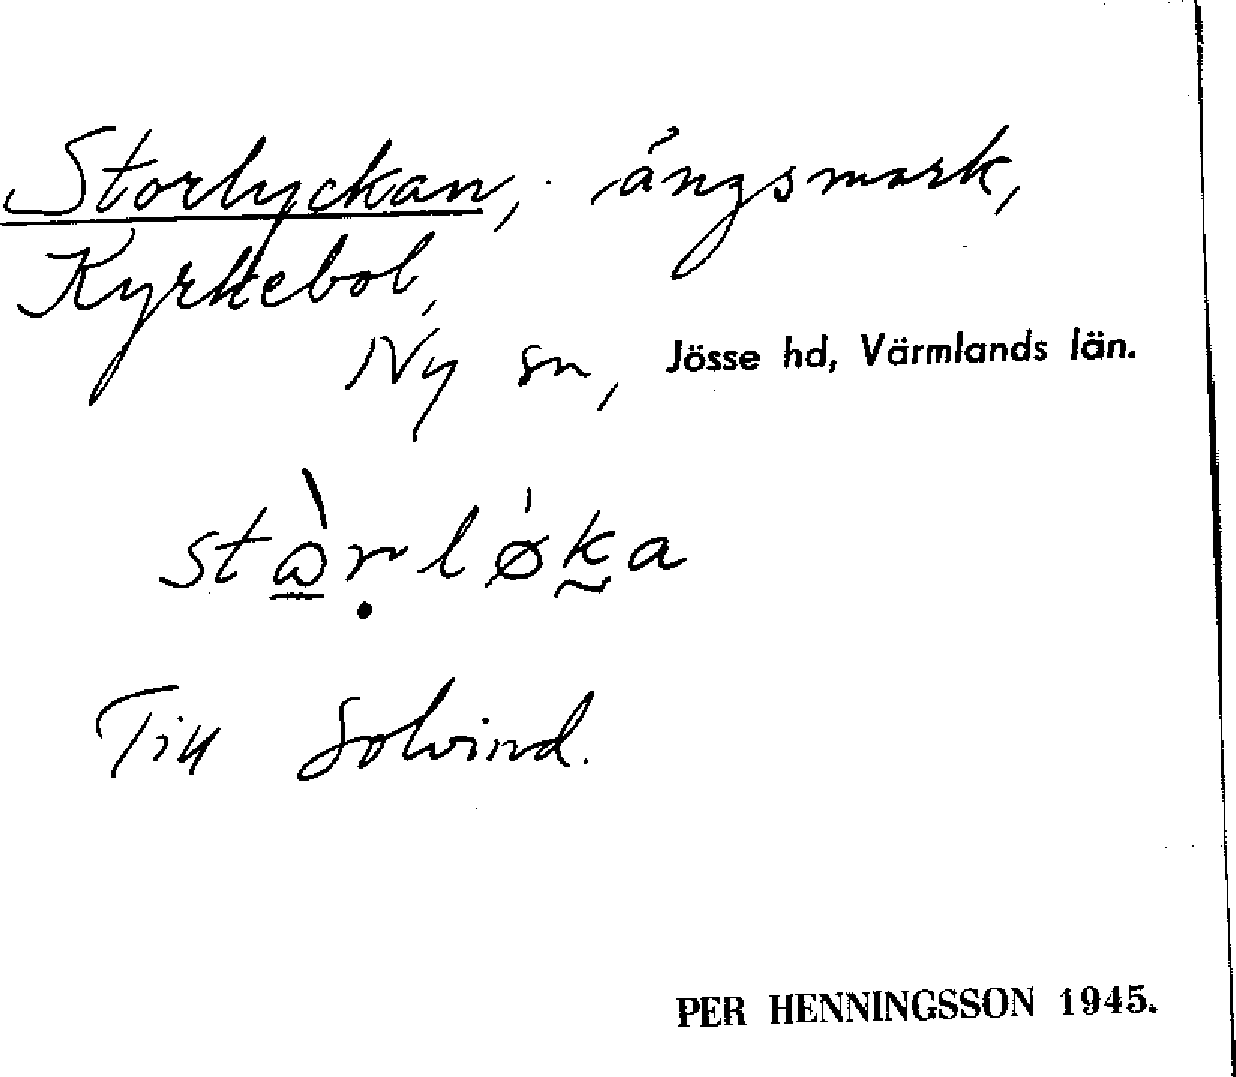 Storlyckan, ängsmark,
Kyrkebol,
Ny sn, Jösse hd, Värmlands län.
stɷ̠̀ṛløka
Till Solvind.
PER HENNINGSSON 1945.